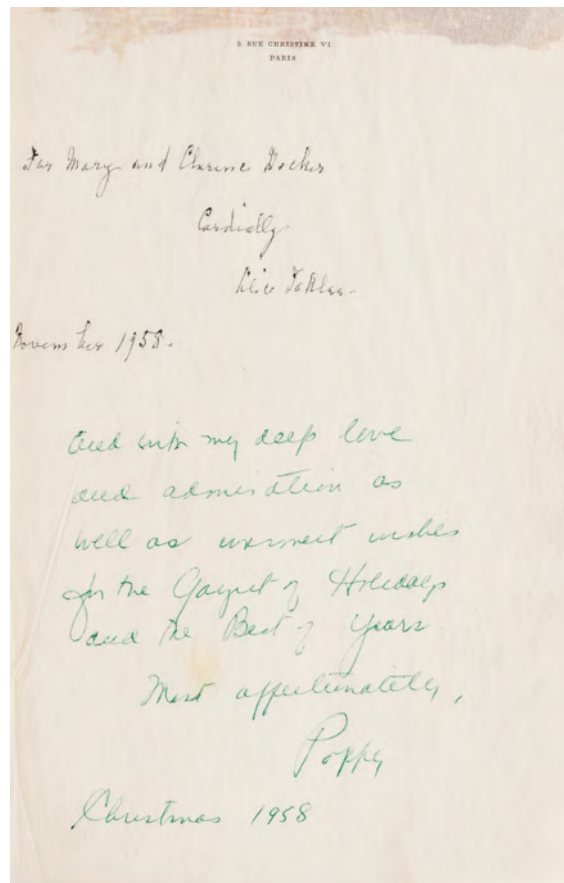 5 RUE CHRISTINE VI
PARIS
For Mary and Clarence Decker
Cordially
Alice Toklas.
November 1958.
And with my deep love
and admiration as
well as warmest wishes
for the Gayest of Holidays
and the Best of Years
Most affectionately,
Poppy
Christmas 1958